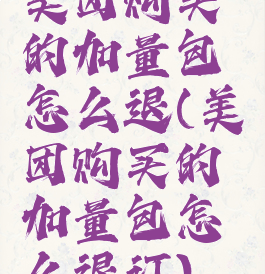 美团购买
的加量包
怎么退(美
团购买的
加量包怎
么退订)